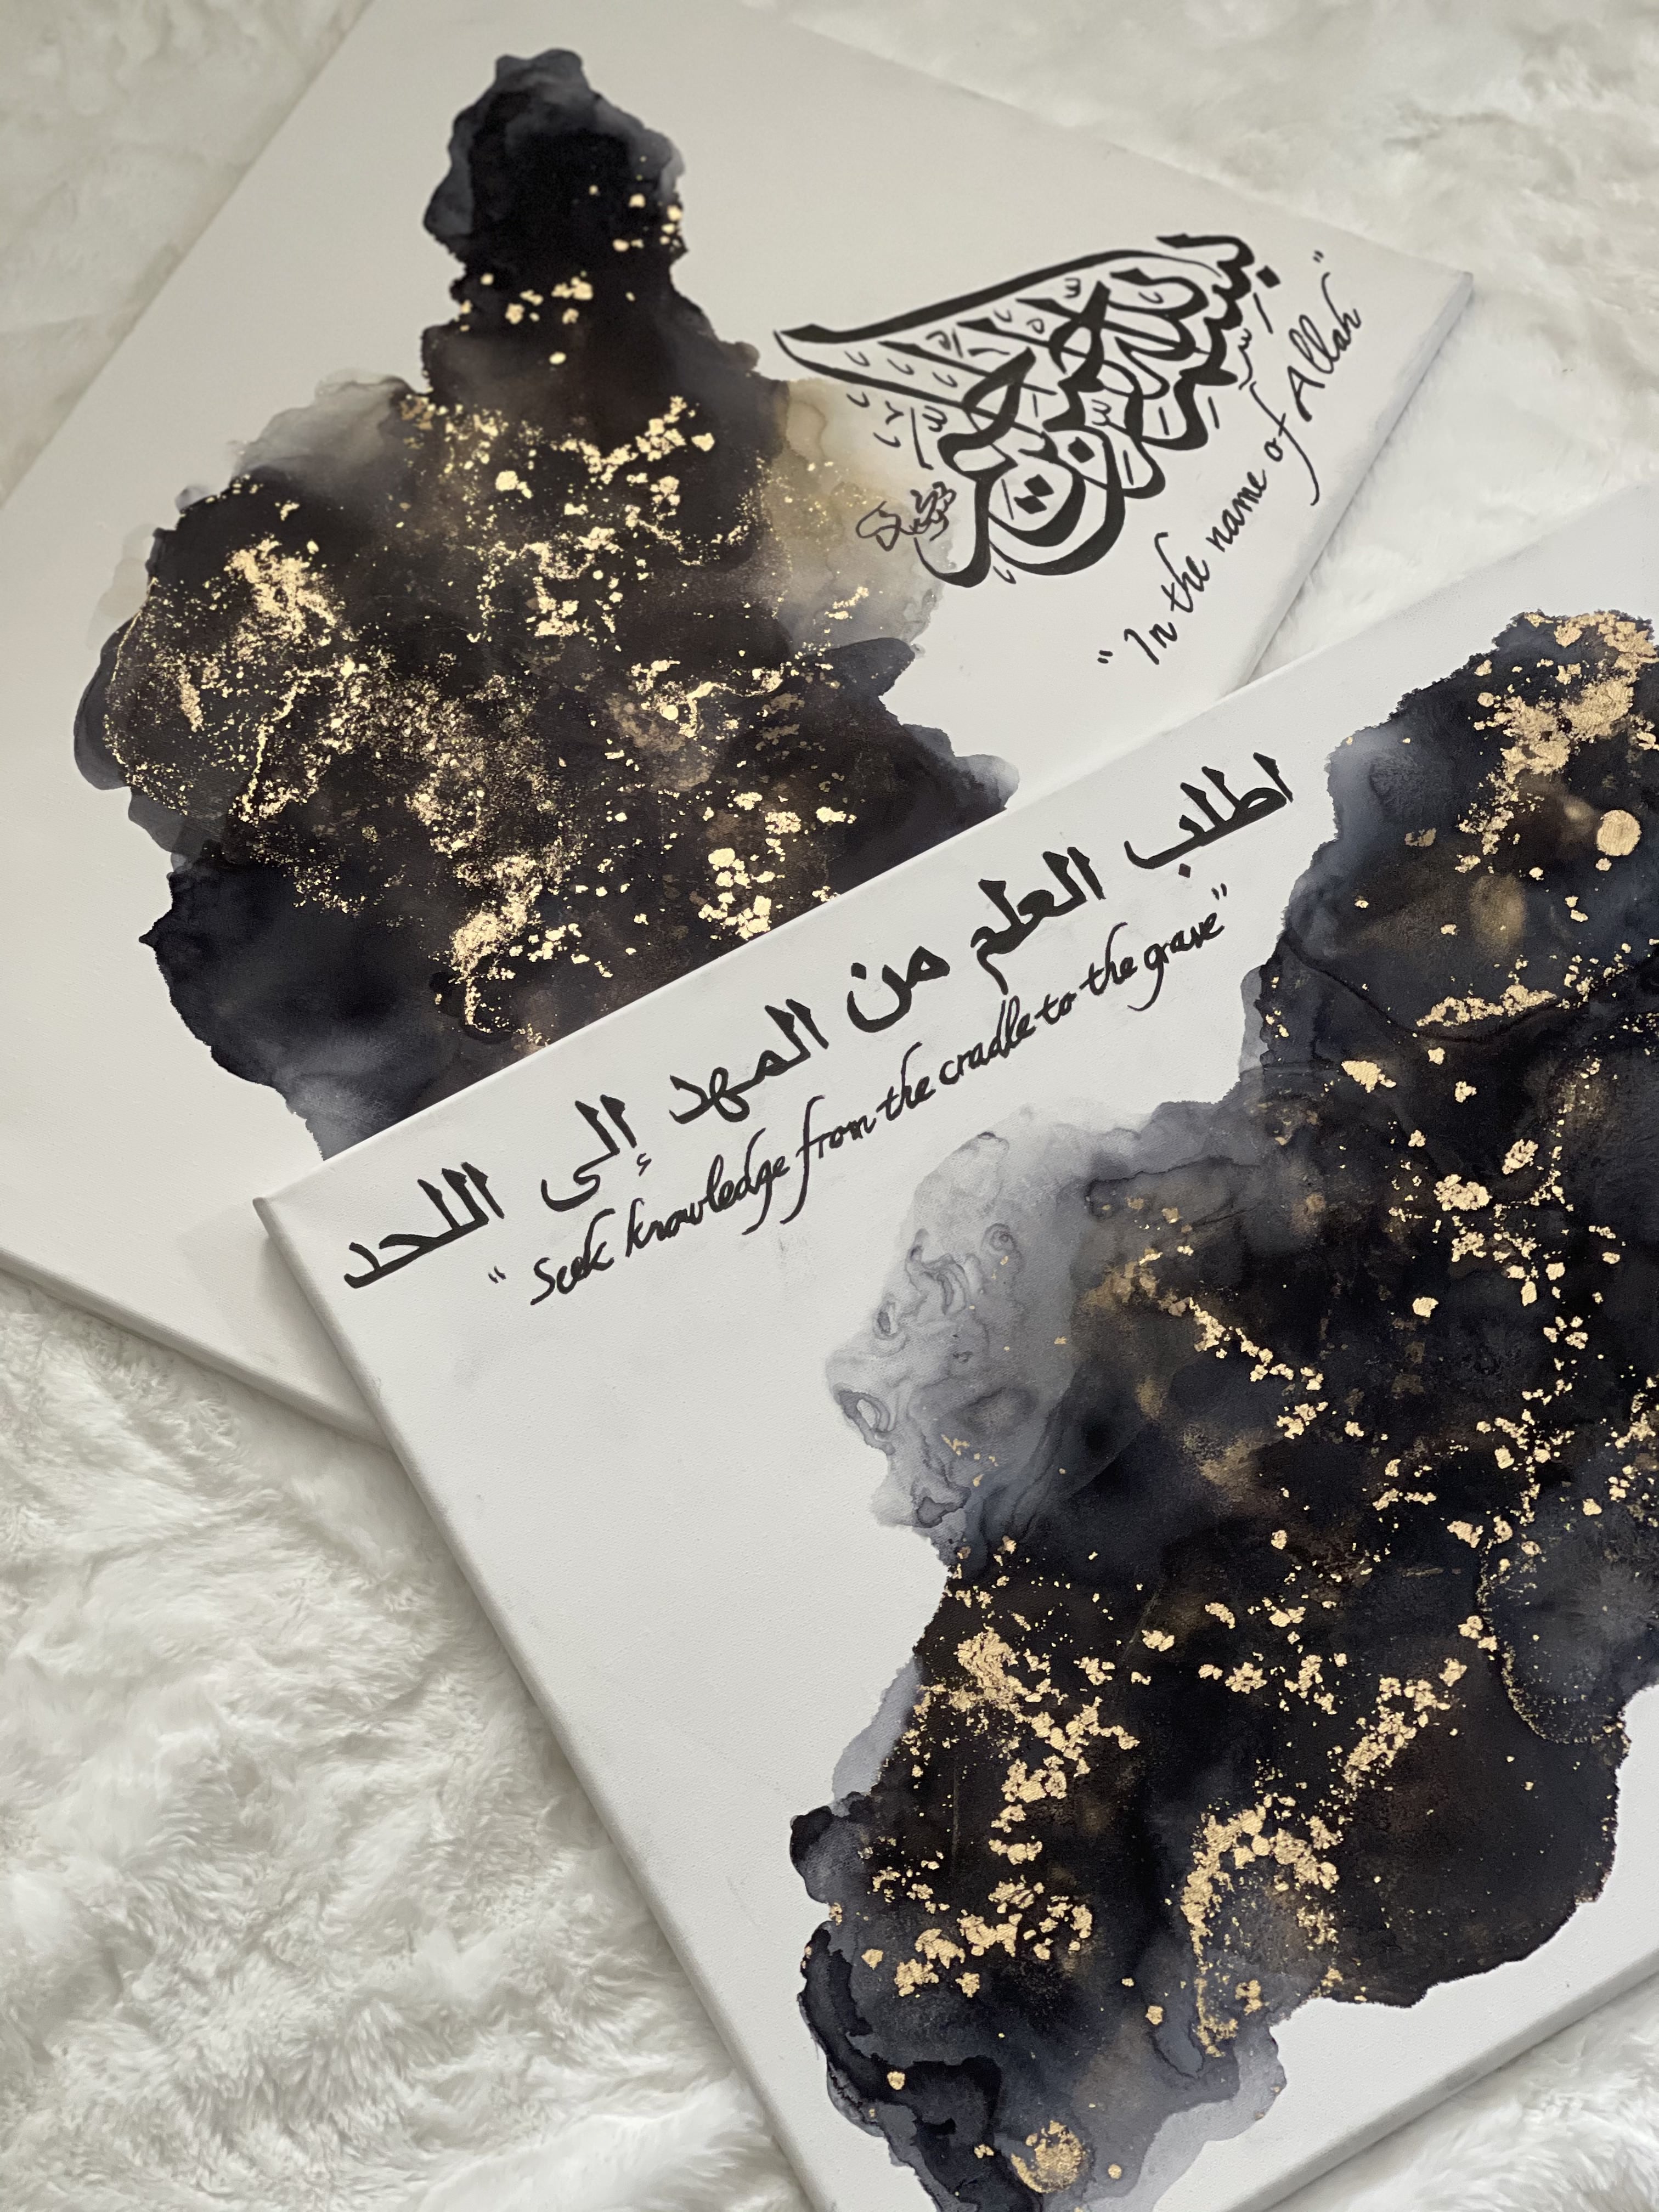 بسم الله الرحمن الرحيم
"In the name of Allah"
اطلب العلم من المهد إلى اللحد
"Seek knowledge from the cradle to the grave"